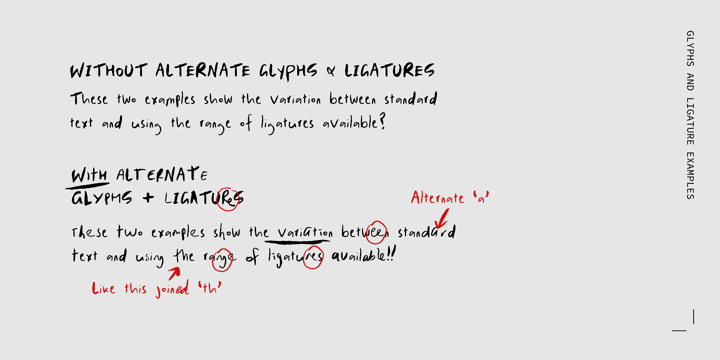 WITHOUT ALTERNATE GLYPHS & LIGATURES
These two examples show the variation between standard
text and using the range of ligatures available?
WITH ALTERNATE
GLYPHS + LIGATUREs
These two examples show the variation between standard
text and using the range of ligatures available!!
Alternate 'a'
Like this joined 'th'
GLYPHS AND LIGATURE EXAMPLES